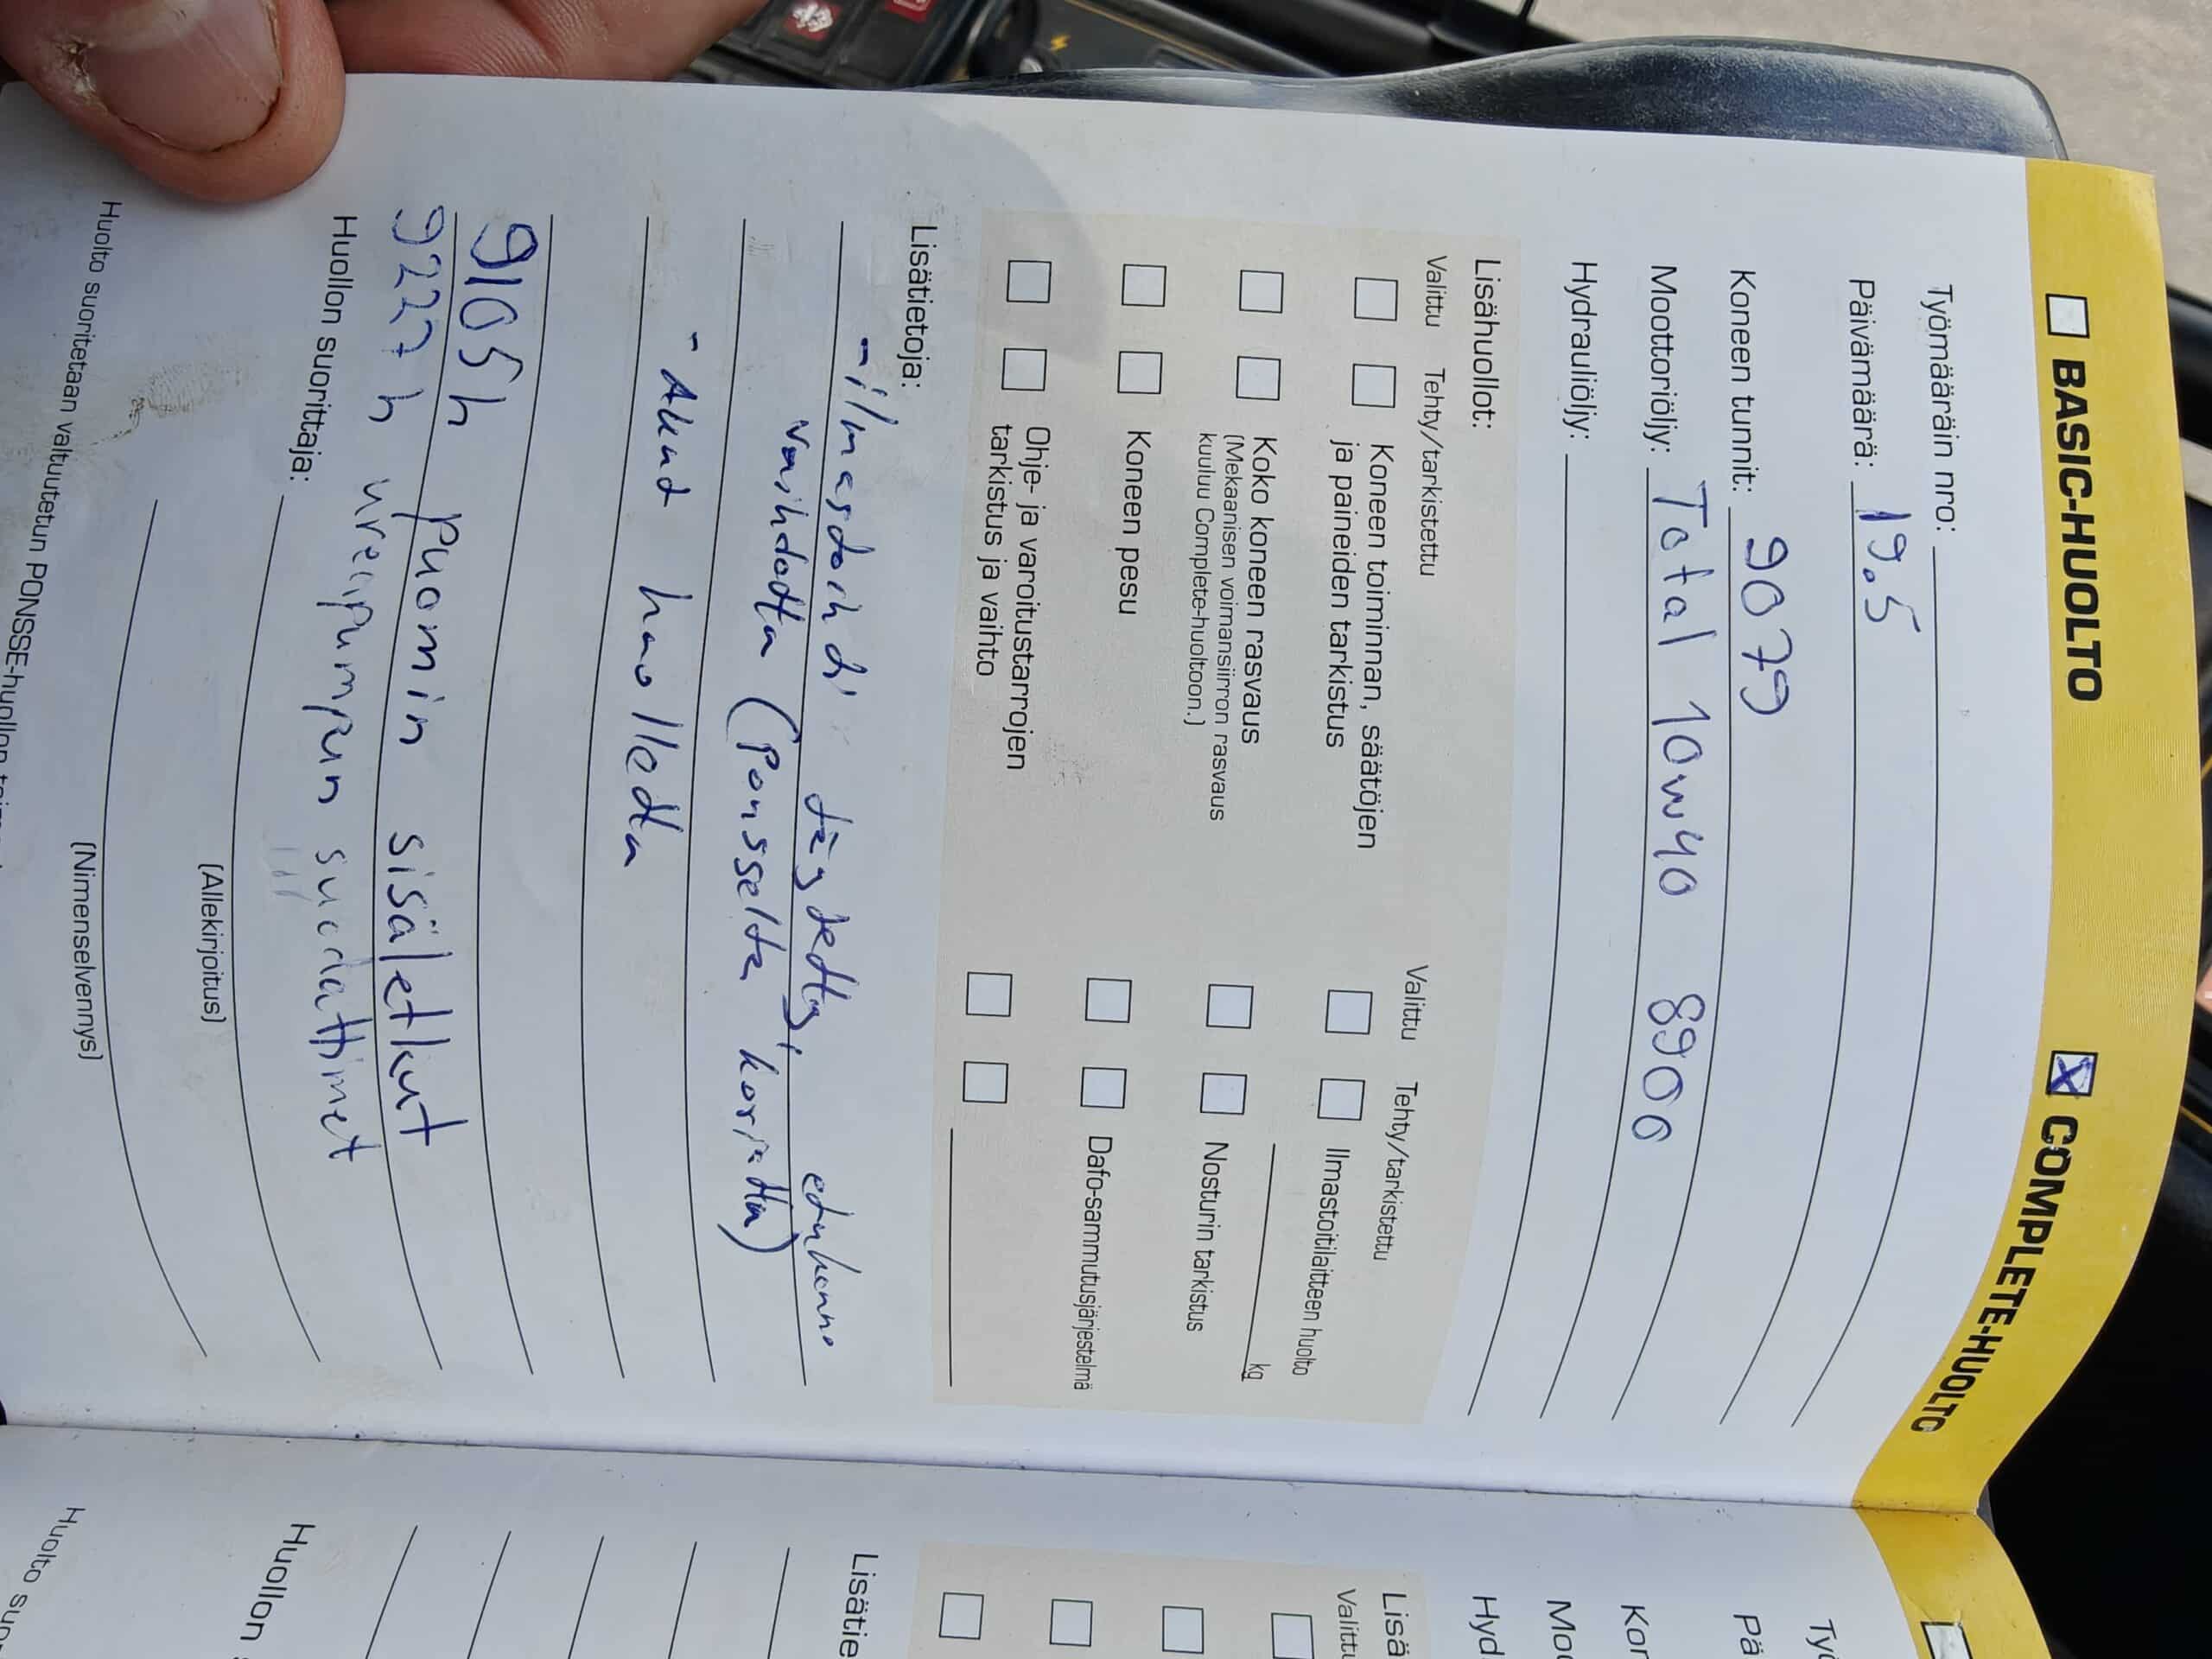 BASIC-HUOLTO COMPLETE-HUOLTO
Työmääräin nro:
Päivämäärä: 19.5
Koneen tunnit: 9079
Moottoriöljy: Total 10w40 8900
Hydrauliöljy:
Lisähuollot:
Valittu Tehty/tarkistettu Valittu Tehty/tarkistettu
Koneen toiminnan, säätöjen
ja paineiden tarkistus
Ilmastoitilaitteen huolto
kg
Koko koneen rasvaus
(Mekaanisen voimansiirron rasvaus
kuuluu Complete-huoltoon.)
Nosturin tarkistus
Koneen pesu
Dafo-sammutusjärjestelmä
Ohje- ja varoitustarrojen
tarkistus ja vaihto
Lisätietoja:
- ilmastoindi täytetty,
vaihdettu (Ponsselta
- Akut
9105h puomin sisäletkut
9227 h ureapumpun suodattimet
Huollon suorittaja:
(Allekirjoitus)
(Nimenselvennys)
Huolto suoritetaan valtuutetun PONSSE-huollon
Työ
Pä
Kor
Moo
Hyd
Lisä
Valittu
Lisätie
Huollon
Huolto suor